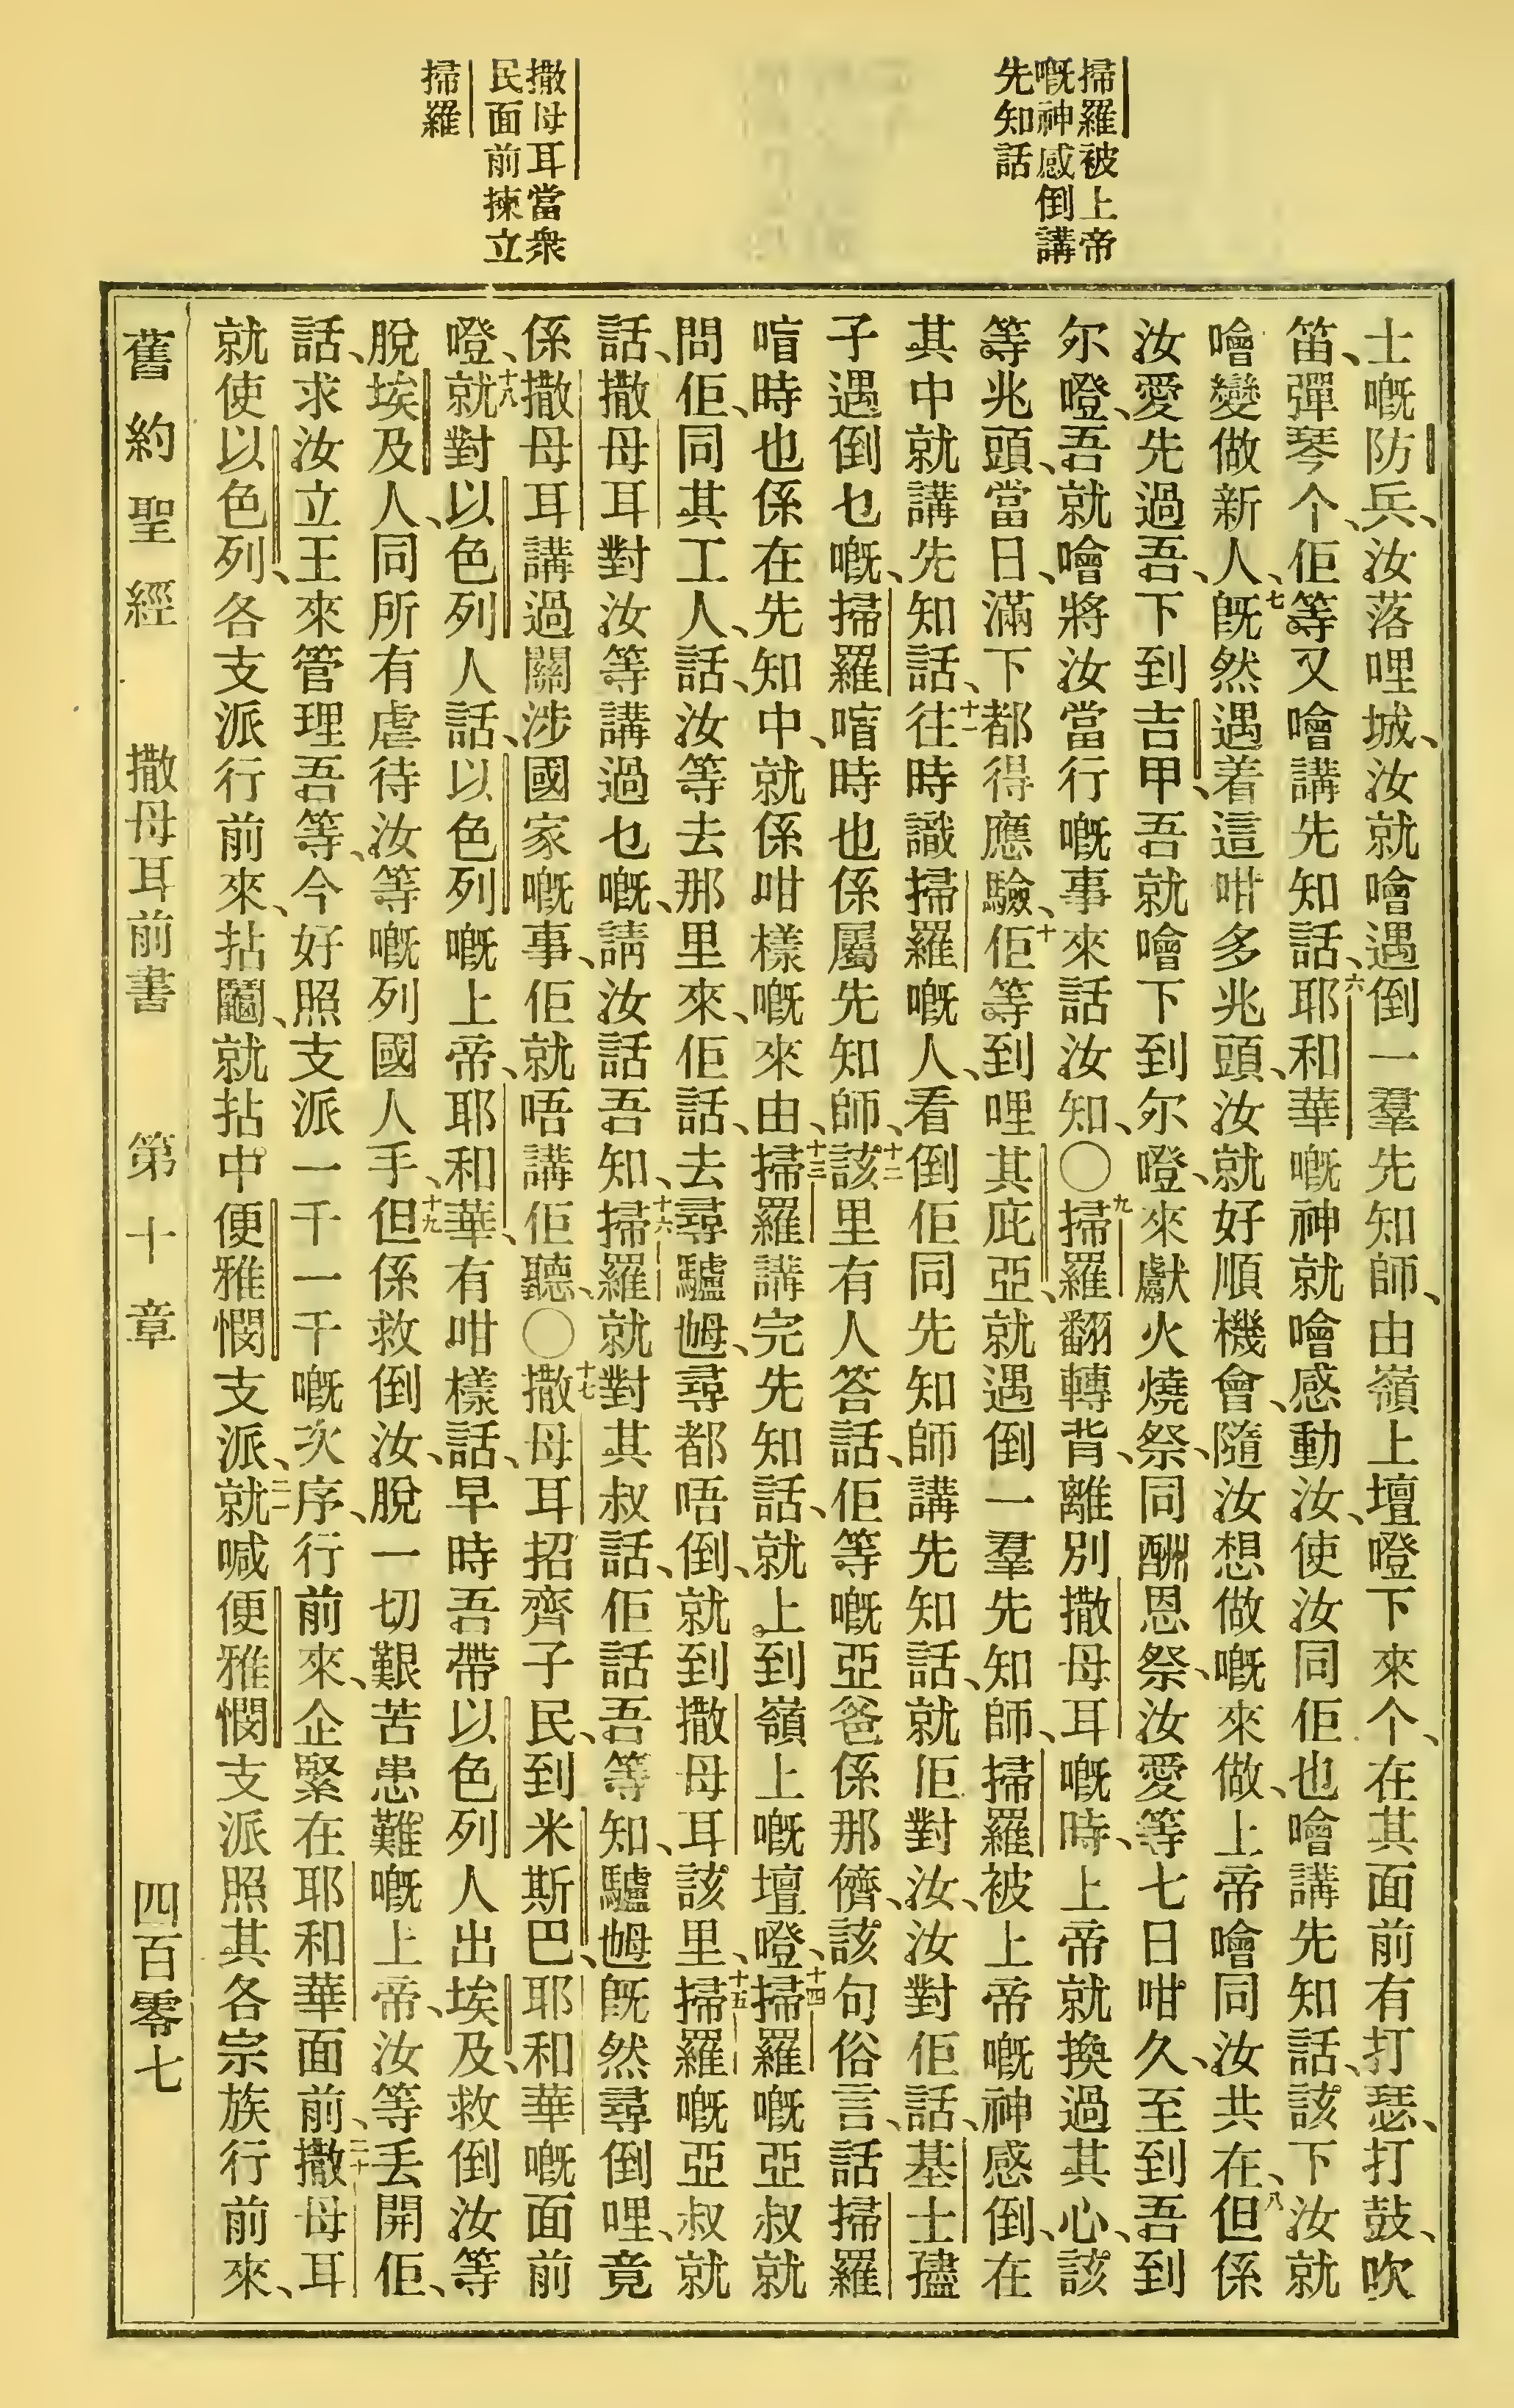 掃羅被上帝
嘅神感倒講
先知話
撒母耳當衆
民面前揀立
掃羅
士嘅防兵、汝落哩城、汝就噲遇倒一羣先知師、由嶺上壇嶝下來个、在其面前有打瑟、打鼓、吹
笛、彈琴个、佢等又噲講先知話、六耶和華嘅神就噲感動汝、使汝同佢也噲講先知話、該下汝就
噲變做新人、七旣然遇着這咁多兆頭、汝就好順機會、隨汝想做嘅來做、上帝噲同汝共在、八但係
汝愛先過吾、下到吉甲、吾就噲下到尓嶝、來獻火燒祭、同酬恩祭、汝愛等七日咁久、至到吾到
尓嶝、吾就噲將汝當行嘅事來話汝知、〇九掃羅翻轉背、離別撒母耳嘅時、上帝就換過其心、該
等兆頭、當日、滿下都得應驗、十佢等到哩其庇亞、就遇倒一羣先知師、掃羅被上帝嘅神感倒、在
其中就講先知話、十一往時識掃羅嘅人、看倒佢同先知師講先知話、就佢對汝、汝對佢話、基士孻
子遇倒乜嘅、掃羅喑時也係屬先知師、十二該里有人答話、佢等嘅亞爸係那儕、該句俗言、話掃羅
喑時也係在先知中、就係咁樣嘅來由、十三掃羅講完先知話、就上到嶺上嘅壇嶝、十四掃羅嘅亞叔就
問佢、同其工人、話、汝等去那里來、佢話、去尋驢𡜵、尋都唔倒、就到撒母耳該里、十五掃羅嘅亞叔就
話、撒母耳對汝等講過乜嘅、請汝話吾知、十六掃羅就對其叔話、佢話吾等知、驢𡜵旣然尋倒哩、竟
係撒母耳講過關涉國家嘅事、佢就唔講佢聽、〇十七撒母耳招齊子民、到米斯巴、耶和華嘅面前
嶝、十八就對以色列人話、以色列嘅上帝、耶和華、有咁樣話、早時吾帶以色列人出埃及、救倒汝等
脫埃及人、同所有虐待汝等嘅列國人手、十九但係救倒汝、脫一切艱苦患難嘅上帝、汝等丟開佢、
話、求汝立王來管理吾等、今好照支派一千一千嘅次序、行前來、企緊在耶和華面前、二十撒母耳
就使以色列、各支派行前來、拈鬮、就拈中便雅憫支派、二一就喊便雅憫支派照其各宗族行前來、
舊約聖經　撒母耳前書　第十章　四百零七